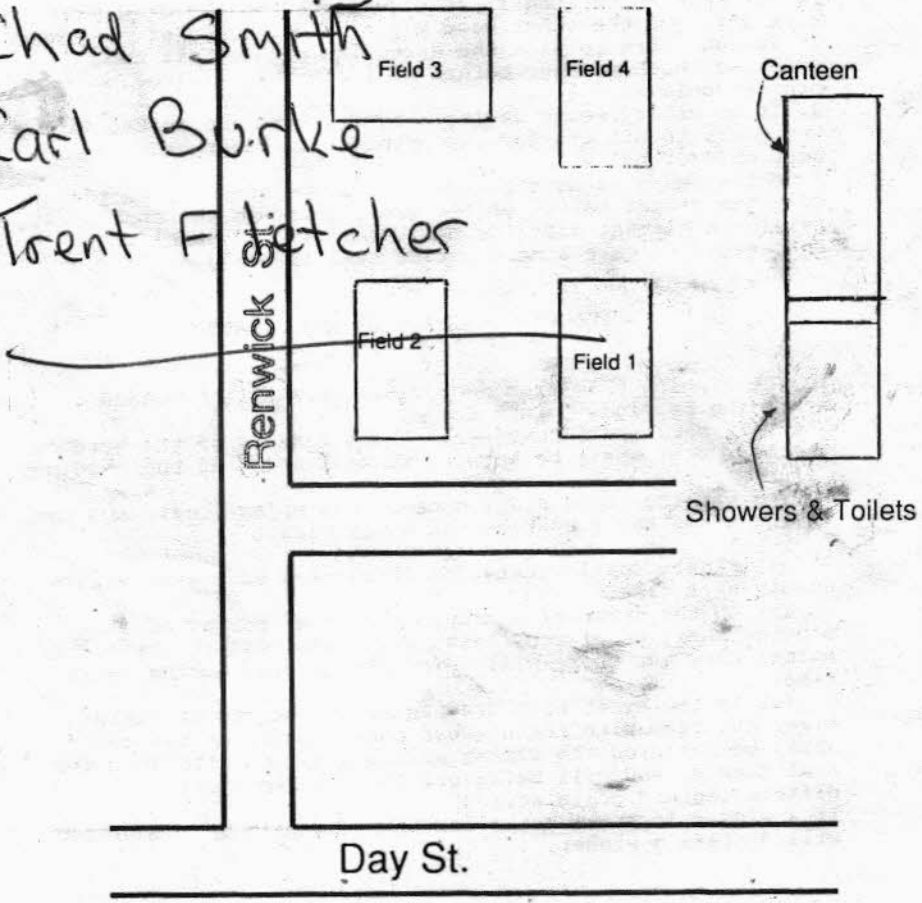 Chad Smith
Carl Burke
Trent Fletcher
Field 3
Field 4
Canteen
Renwick St.
Field 2
Field 1
Showers & Toilets
Day St.